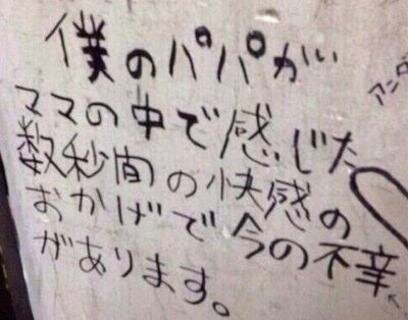 僕のパパが
ママの中で感じた
数秒間の快感の
おかげで今の不幸
があります。